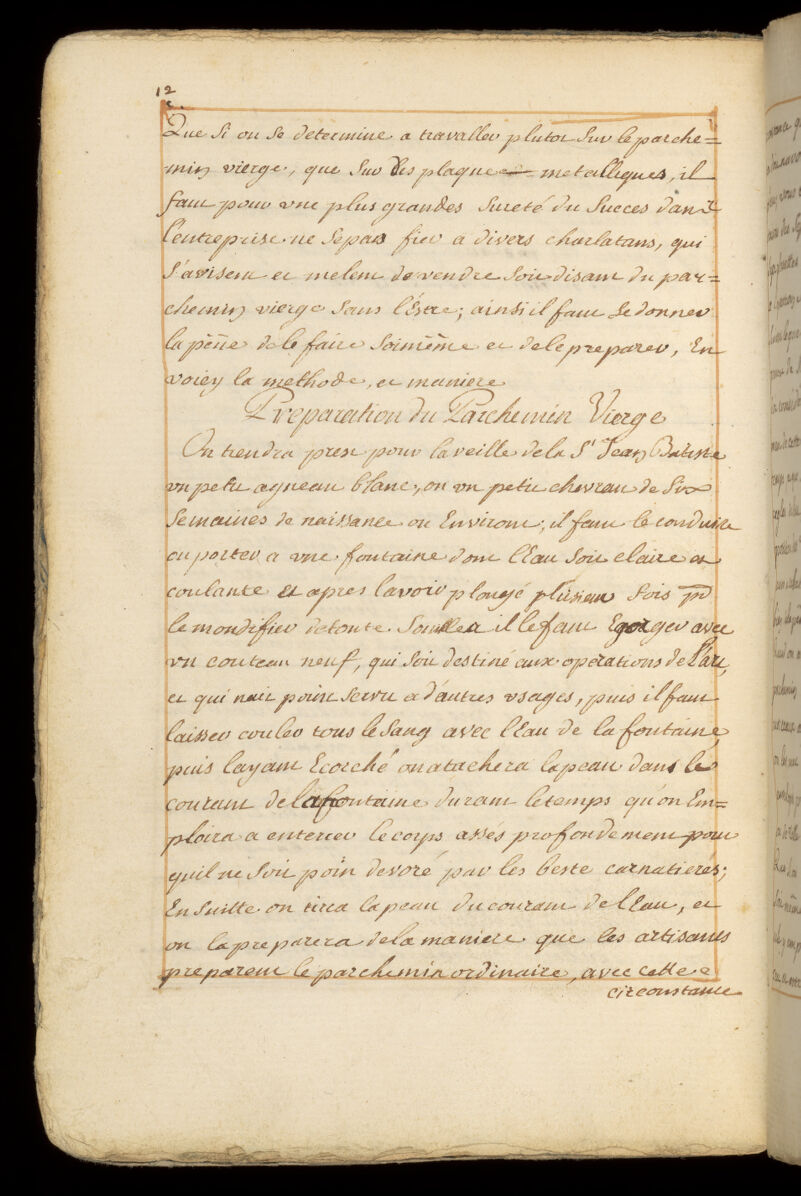 12
Que si on se determine a travaller plutot sur le parche=
min vierge, que sur des plaques metalliques, il
faut pour une plus grandes sureté du succes dans
l'entreprise ne se pas fier a divers charlatans, qui
s'avisent et melent de vendre soit disant du par=
chemin vierge sans l'estre; ainsi il faut se donner
la peine de le faire soimême et de le preparer, En
voicy la methode, et maniere
Preparation du Parchemin Vierge
On tiendra prest pour la veille de la St Jean Batiste
un petit agneau blanc, ou un petit chevreau de six
semaines de naissance ou Environt; il faut le conduire
ou porter a une fontaine dont l'Eau soit claire et
coulante et apres lavoir plongé plusieur fois pr
le mondifier de toute souillea il le faut Egorger avec
un couteau neuf, qui soit destiné aux operations de l'art,
et qui nait point servit a d'autres usages, puis il faut
laisser couler tous le sang avec l'Eau de la fontaine,
puis layant Ecorché on atachera la peau dans le
courant de la fontaine durant le temps qu'on Em=
ploira a enterrer le corps assés profondement pour
quil ne soit poin devoré par les beste carnatieres;
En suitte on tirea la peau du courant de l'Eau, et
on la preparera de la maniere que les artisants
preparent le parchemin ordinaire, avec cette
circonstance